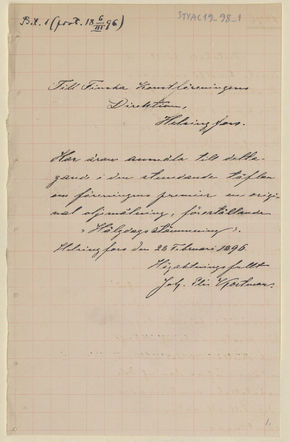 Bil. 1 (prot. 18 6/III 96)
STYAC19_98_1
Till Finska Konstföreningens
Direktion,
Helsingfors.
Har äran anmäla till delta-
gande i den stundande täflan
om föreningens premier en origi-
nal oljmålning, föreställande
"Hälgdagsstämning".
Helsingfors den 28 Februari 1896.
Högaktningsfullt
Joh. Elis
1.